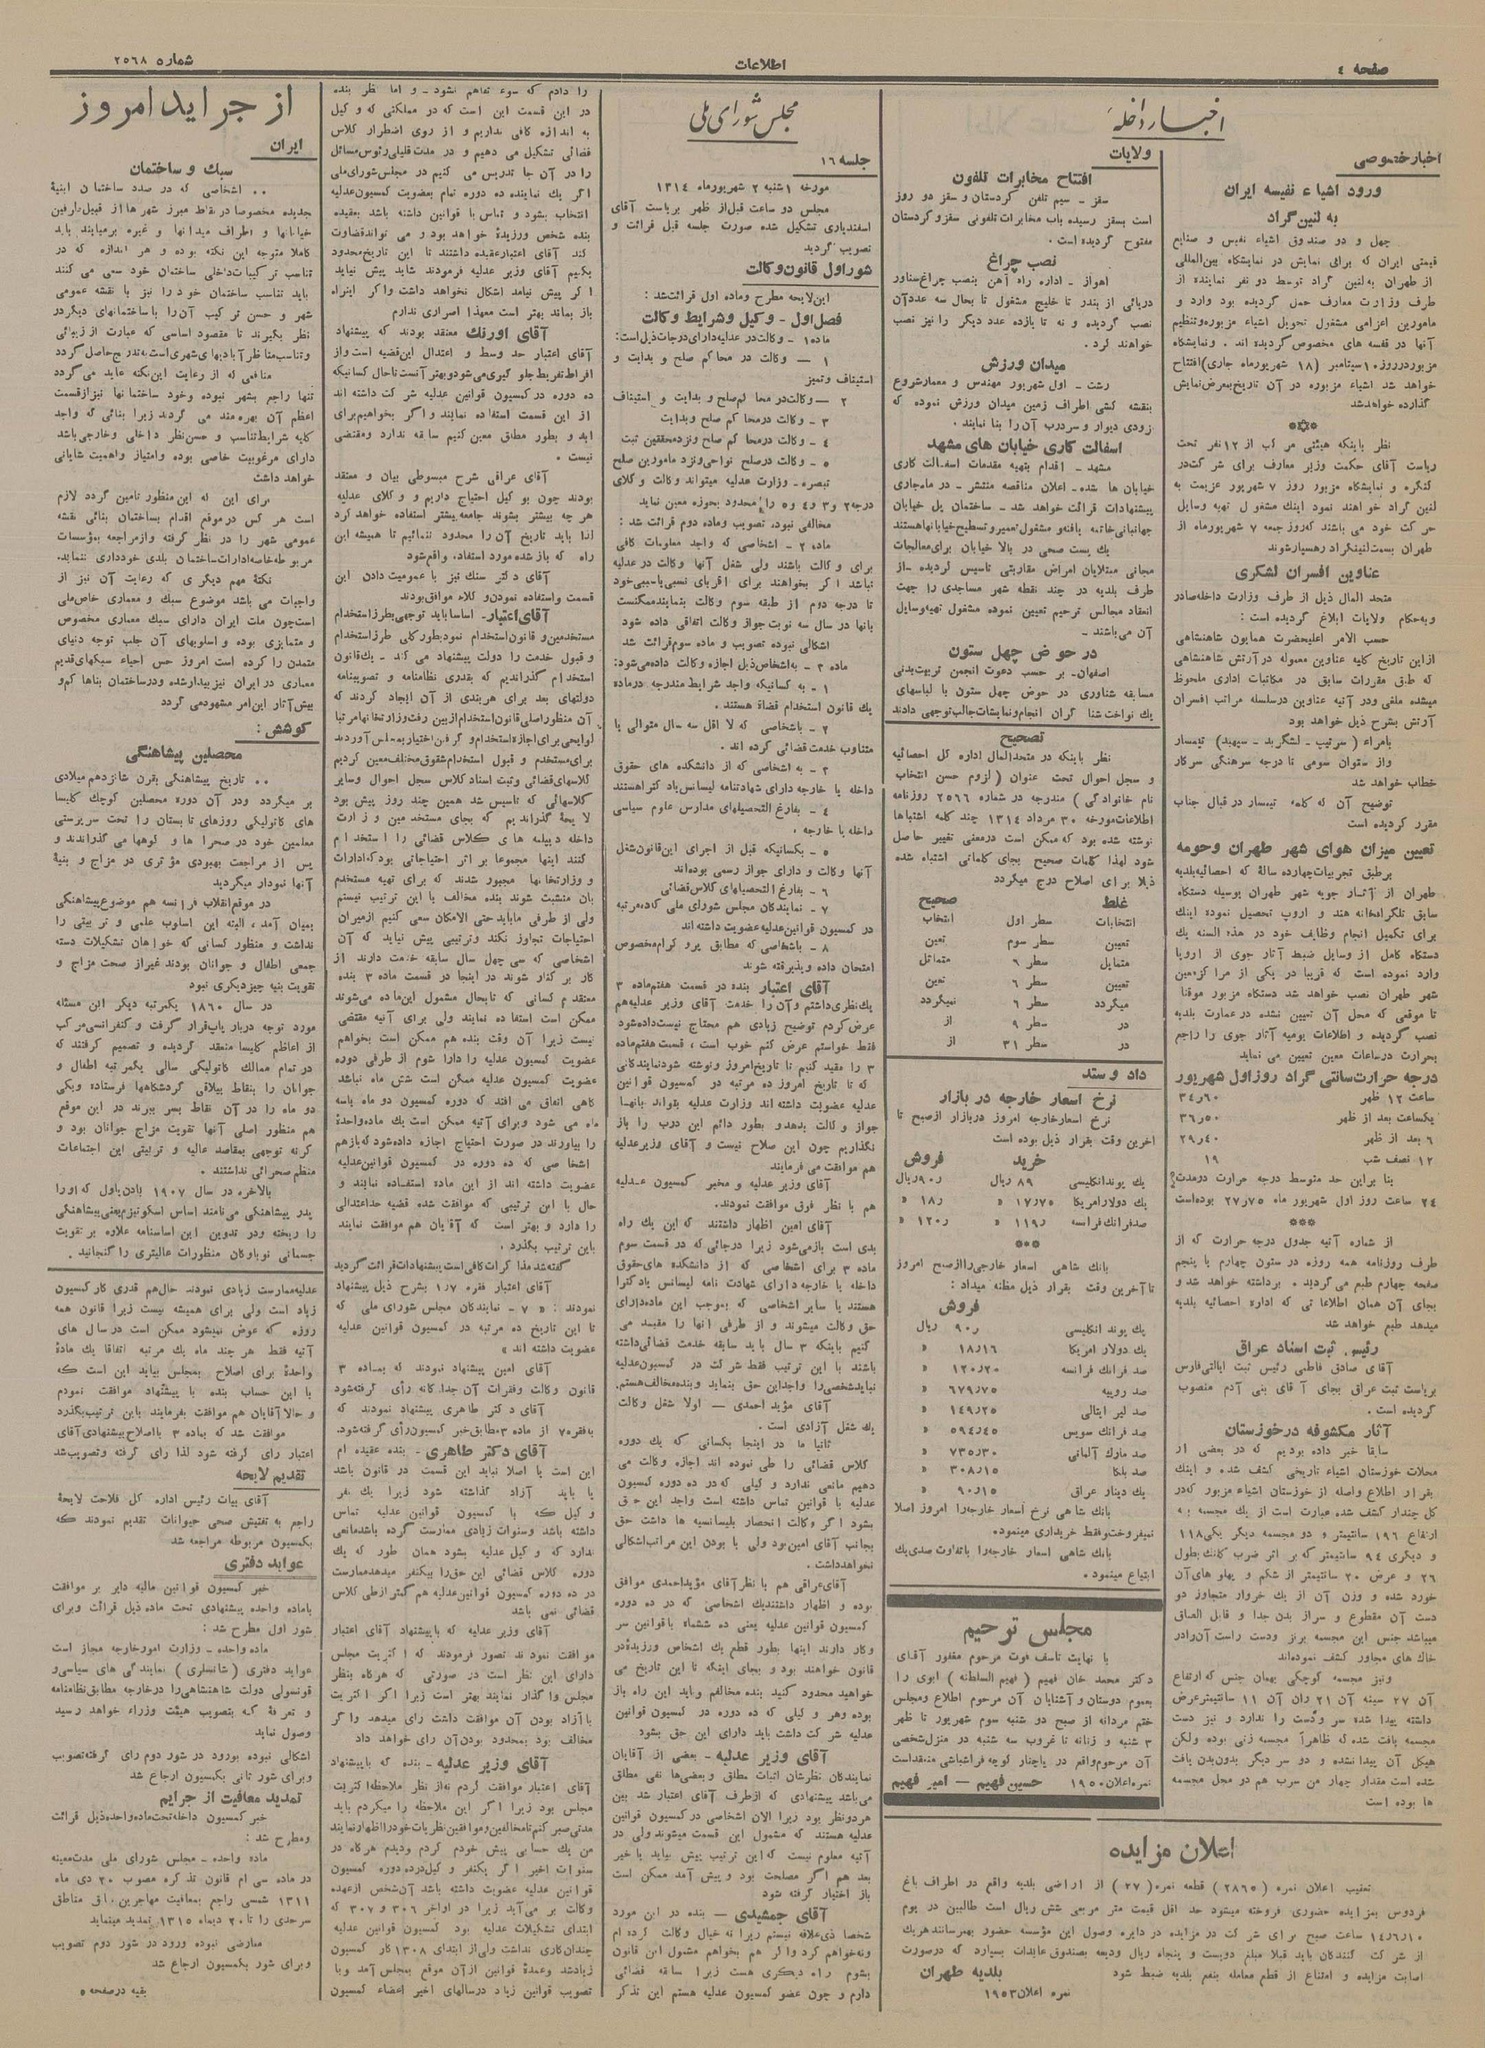 صفحه ٤
اطلاعات
شماره ٢٥٦٨
اخبار داخله
اخبار خصوصی
ورود اشیاء نفیسه ایران
به لنین گراد
چهل و دو صندوق اشیاء نفیس و صنایع
قیمتی ایران که برای نمایش در نمایشگاه بین‌المللی
از طهران به لنین گراد توسط دو نفر نماینده از
طرف وزارت معارف حمل گردیده بود وارد و
مامورین اعزامی مشغول تحویل اشیاء مزبوره و تنظیم
آنها در قفسه های مخصوص گردیده اند . و نمایشگاه
مزبور در روز ١٠ سپتامبر (١٨ شهریور ماه جاری) افتتاح
خواهد شد اشیاء مزبوره در آن تاریخ بمعرض نمایش
گذارده خواهد شد
نظر باینکه هیئتی مرکب از ١٢ نفر تحت
ریاست آقای حکمت وزیر معارف برای شرکت در
کنگره و نمایشگاه مزبور روز ٧ شهریور عزیمت به
لنین گراد خواهند نمود اینک مشغول تهیه وسایل
حرکت خود می باشند که روز جمعه ٧ شهریور ماه از
طهران بسمت لنینگراد رهسپار شوند
عناوین افسران لشکری
متحد المال ذیل از طرف وزارت داخله صادر
و به حکام ولایات ابلاغ گردیده است :
حسب الامر اعلیحضرت همایون شاهنشاهی
از این تاریخ کلیه عناوین معموله در آرتش شاهنشاهی
که طبق مقررات سابق در مکاتبات اداری ملحوظ
میشده ملغی و در آتیه عناوین در سلسله مراتب افسران
آرتش بشرح ذیل خواهد بود
بامراء ( سرتیپ - لشگربد - سپهبد) تیمسار
و از ستوان سومی تا درجه سرهنگی سرکار
خطاب خواهد شد
توضیح آن که کلمه تیمسار در قبال جناب
مقرر گردیده است
تعیین میزان هوای شهر طهران و حومه
برطبق تجربیات چهارده سالهٔ که احصائیه بلدیه
طهران از آثار جویه شهر طهران بوسیله دستگاه
سابق تلگرافخانه هند و اروپ تحصیل نموده اینک
برای تکمیل انجام وظایف خود در هذه السنه یک
دستگاه کامل از وسایل ضبط آثار جوی از اروپا
وارد نموده است که قریبا در یکی از مراکز معین
شهر طهران نصب خواهد شد دستگاه مزبور موقتا
تا موقعی که محل آن تعیین نشده در عمارت بلدیه
نصب گردیده و اطلاعات یومیه آثار جوی را راجع
بحرارت در ساعات معین تعیین می نماید
درجه حرارت سانتی گراد روز اول شهریور
ساعت ١٢ ظهر ٣٤٫٦٠
یکساعت بعد از ظهر ٣٦٫٥٠
٦ بعد از ظهر ٢٩٫٤٠
١٢ نصف شب ١٩
بنا براین حد متوسط درجه حرارت در مدت
٢٤ ساعت روز اول شهریور ماه ٢٧٫٧٥ بوده است
***
از شماره آتیه جدول درجه حرارت که از
طرف روزنامه همه روزه در ستون چهارم یا پنجم
صفحه چهارم طبع می گردید . برداشته خواهد شد و
بجای آن همان اطلاعاتی که اداره احصائیه بلدیه
میدهد طبع خواهد شد
رئیس ثبت اسناد عراق
آقای صادق فاطمی رئیس ثبت ایالتی فارس
بریاست ثبت عراق بجای آقای بنی آدم منصوب
گردیده است .
آثار مکشوفه در خوزستان
سابقا خبر داده بودیم که در بعضی از
محلات خوزستان اشیاء تاریخی کشف شده و اینک
بقرار اطلاع واصله از خوزستان اشیاء مزبور که در
کل چندار کشف شده عبارت است از یک مجسمه به
ارتفاع ١٩٦ سانتیمتر و دو مجسمه دیگر یکی ١١٨
و دیگری ٩٤ سانتیمتر که بر اثر ضرب کلنگ بطول
٢٦ و عرض ٢٠ سانتیمتر از شکم و پهلو های آن
خورد شده و وزن آن از یک خروار متجاوز دو
دست آن مقطوع و سر از بدن جدا و قابل الصاق
میباشد جنس این مجسمه برنز و دست راست آن را در
خاک های مجاور کشف نموده‌اند
ونیز مجسمه کوچکی بهمان جنس که ارتفاع
آن ٢٧ سینه آن ٢١ ران آن ١١ سانتیمتر عرض
داشته پیدا شده سر و دست را ندارد و نیز دست
مجسمه یافت شده که ظاهراً مجسمه زنی بوده ولکن
هیکل آن پیدا نشده و دو سر دیگر بدون بدن یافت
شده است مقدار چهار من سرب هم در محل مجسمه
ها بوده است
ولایات
افتتاح مخابرات تلفون
سقز - سیم تلفن کردستان و سقز دو روز
است بسقز رسیده باب مخابرات تلفونی سقز و کردستان
مفتوح گردیده است .
نصب چراغ
اهواز - اداره راه آهن بنصب چراغ شناور
دریائی از بندر تا خلیج مشغول تا بحال سه عدد آن
نصب گردیده و نه تا یازده عدد دیگر را نیز نصب
خواهند کرد .
میدان ورزش
رشت - اول شهریور مهندس و معمار شروع
بنقشه کشی اطراف زمین میدان ورزش نموده که
بزودی دیوار و سردرب آن را بنا نمایند .
اسفالت کاری خیابان های مشهد
مشهد - اقدام بتهیه مقدمات اسفالت کاری
خیابان ها شده - اعلان مناقصه منتشر - در ماه جاری
پیشنهادات قرائت خواهد شد - ساختمان پل خیابان
جهانبانی خاتمه یافته و مشغول تعمیر و تسطیح خیابانها هستند
یک بست صحی در بالا خیابان برای معالجات
مجانی مبتلایان امراض مقاربتی تاسیس گردیده - از
طرف بلدیه در چند نقطه شهر مساجدی را جهت
انعقاد مجالس ترحیم تعیین نموده مشغول تهیه وسایل
آن می‌باشند -
در حوض چهل ستون
اصفهان - بر حسب دعوت انجمن تربیت بدنی
مسابقه شناوری در حوض چهل ستون با لباسهای
یک نواخت شناگران انجام و نمایشات جالب توجهی دادند
تصحیح
نظر باینکه در متحدالمال اداره کل احصائیه
و سجل احوال تحت عنوان ( لزوم حسن انتخاب
نام خانوادگی ) مندرجه در شماره ٢٥٦٦ روزنامه
اطلاعات مورخه ٣٠ مرداد ١٣١٤ چند کلمه اشتباها
نوشته شده بود که ممکن است در معنی تغییر حاصل
شود لهذا کلمات صحیح بجای کلماتی اشتباه شده
ذیلا برای اصلاح درج میگردد
غلط صحیح
انتخابات سطر اول انتخاب
تعیین سطر سوم تعین
متمایل سطر ٦ متماثل
تعیین سطر ٦ تعین
میگردد سطر ٦ نمیگردد
در سطر ٩ از
در سطر ٣١ از
داد و ستد
نرخ اسعار خارجه در بازار
نرخ اسعار خارجه امروز در بازار از صبح تا
آخرین وقت بقرار ذیل بوده است
خرید فروش
یک پوند انگلیسی ٨٩ ریال ٩٠ ریال
یک دولار امریکا ١٧٫٧٥ « ١٨ «
صد فرانک فرانسه ١١٩ « ١٢٠ «
***
بانک شاهی اسعار خارجی را از صبح امروز
تا آخرین وقت بقرار ذیل مظنه میداد :
فروش
یک پوند انگلیسی ٩٠ ریال
یک دولار امریکا ١٨٫١٦ «
صد فرانک فرانسه ١٢٠٫٢٠ «
صد روپیه ٦٧٩٫٧٥ «
صد لیر ایتالی ١٤٩٫٢٥ «
صد فرانک سویس ٥٩٤٫٤٥ «
صد مارک آلمانی ٧٣٥٫٣٠ «
صد بلگا ٣٠٨٫١٥ «
یک دینار عراق ٩٠٫١٥ «
بانک شاهی نرخ اسعار خارجه را امروز اصلا
نمیفروخت و فقط خریداری مینمود .
بانک شاهی اسعار خارجه را با تفاوت صدی یک
ابتیاع مینمود .
مجلس ترحیم
با نهایت تاسف فوت مرحوم مغفور آقای
دکتر محمد خان فهیم ( فهیم السلطنه ) ابوی را
بعموم دوستان و آشنایان آن مرحوم اطلاع و مجلس
ختم مردانه از صبح دو شنبه سوم شهریور تا ظهر
٣ شنبه و زنانه تا غروب سه شنبه در منزل شخصی
آن مرحوم واقع در پاچنار کوچه فراشباشی منعقد است
نمره اعلان ١٩٥٠ حسین فهیم - امیر فهیم
اعلان مزایده
تعقیب اعلان نمره (٢٨٦٥) قطعه نمره (٢٧) از اراضی بلدیه واقع در اطراف باغ
فردوس بمزایده حضوری فروخته میشود حد اقل قیمت متر مربعی شش ریال است طالبین در یوم
١٤/٦/١٠ ساعت صبح برای شرکت در مزایده در دایره وصول این مؤسسه حضور بهمرسانند هریک
از شرکت کنندگان باید قبلا مبلغ دویست و پنجاه ریال ودیعه بصندوق عایدات بسپارد که در صورت
اصابت مزایده و امتناع از قطع معامله بنفع بلدیه ضبط شود
بلدیه طهران
نمره اعلان ١٩٥٣
مجلس شورای ملی
جلسه ١٦
مورخه ١ شنبه ٢ شهریور ماه ١٣١٤
مجلس دو ساعت قبل از ظهر بریاست آقای
اسفندیاری تشکیل شده صورت جلسه قبل قرائت و
تصویب گردید
شور اول قانون وکالت
این لایحه مطرح و ماده اول قرائت شد :
فصل اول - وکیل و شرایط وکالت
ماده ١ - وکالت در عدلیه دارای درجات ذیل است:
١ — وکالت در محاکم صلح و بدایت و
استیناف وتمیز
٢ — وکالت در محاکم صلح و بدایت و استیناف
٣ - وکالت در محاکم صلح وبدایت
٤ - وکالت در محاکم صلح ونزد محققین ثبت
٥ - وکالت در صلح نواحی و نزد مامورین صلح
تبصره - وزارت عدلیه میتواند وکالت وکلای
درجه ٢ و ٣ و ٤ و ٥ را محدود بحوزه معین نماید
مخالفی نبود، تصویب وماده دوم قرائت شد :
ماده ٢ - اشخاصی که واجد معلومات کافی
برای وکالت باشند ولی شغل آنها وکالت در عدلیه
نباشد اگر بخواهند برای اقربای نسبی یا سببی خود
تا درجه دوم از طبقه سوم وکالت بنمایند ممکنست
بآنها در سال سه نوبت جواز وکالت اتفاقی داده شود
اشکالی نبوده تصویب و ماده سوم قرائت شد
ماده ٣ - به اشخاص ذیل اجازه وکالت داده می‌شود:
١ - به کسانیکه واجد شرایط مندرجه در ماده
یک قانون استخدام قضاة هستند .
٢ - باشخاصی که لا اقل سه سال متوالی یا
متناوب خدمت قضائی کرده اند .
٣ - به اشخاصی که از دانشکده های حقوق
داخله یا خارجه دارای شهادتنامه لیسانس یا دکترا هستند
٤ - بفارغ التحصیلهای مدارس علوم سیاسی
داخله یا خارجه .
٥ - بکسانیکه قبل از اجرای این قانون شغل
آنها وکالت و دارای جواز رسمی بوده‌اند
٦ - بفارغ التحصیلهای کلاس قضائی
٧ - نمایندگان مجلس شورای ملی که ده مرتبه
در کمسیون قوانین عدلیه عضویت داشته اند
٨ - باشخاصی که مطابق پروگرام مخصوص
امتحان داده و پذیرفته شوند
آقای اعتبار بنده در قسمت هفتم ماده ٣
یک نظری داشتم و آن را خدمت آقای وزیر عدلیه هم
عرض کردم توضیح زیادی هم محتاج نیست داده شود
فقط خواستم عرض کنم خوب است ، قسمت هفتم ماده
٣ را مقید کنیم تا تاریخ امروز و نوشته شود نمایندگانی
که تا تاریخ امروز ده مرتبه در کمسیون قوانین
عدلیه عضویت داشته اند وزارت عدلیه بتواند بآنها
جواز وکالت بدهد و بطور دائم این درب را باز
نگذاریم چون این صلاح نیست و آقای وزیر عدلیه
هم موافقت می فرمایند
آقای وزیر عدلیه و مخبر کمسیون عدلیه
هم با نظر فوق موافقت نمودند.
آقای امین اظهار داشتند که این یک راه
بدی است باز می‌شود زیرا در جائی که در قسمت سوم
ماده ٣ برای اشخاصی که از دانشکده های حقوق
داخله یا خارجه دارای شهادت نامه لیسانس یا دکترا
هستند یا سایر اشخاصی که بموجب این ماده دارای
حق وکالت میشوند و از طرفی آنها را مقید می
کنیم باینکه ٣ سال باید سابقه خدمت قضائی داشته
باشند با این ترتیب فقط شرکت در کمسیون عدلیه
نباید شخصی را واجد این حق بنماید و بنده مخالف هستم.
آقای مؤید احمدی — اولا شغل وکالت
یک شغل آزادی است .
ثانیا ما در اینجا بکسانی که یک دوره
کلاس قضائی را طی نموده اند اجازه وکالت می
دهیم مانعی ندارد و کیلی که در ده دوره کمسیون
عدلیه با قوانین تماس داشته است واجد این حق
بشود اگر وکالت انحصار بلیسانسیه ها داشت حق
بجانب آقای امین بود ولی با بودن این مراتب اشکالی
نخواهد داشت.
آقای عراقی هم با نظر آقای مؤید احمدی موافق
بوده و اظهار داشتند یک اشخاصی که در ده دوره
کمسیون قوانین عدلیه یعنی ده ششماه با قوانین سر
وکار دارند اینها بطور قطع یک اشخاص ورزیده در
قانون خواهند بود و بجای اینکه تا این تاریخ می
خواهید محدود کنید بنده مخالفم و باید این راه باز
بوده و هر و کیلی که ده دوره در کمسیون قوانین
عدلیه شرکت داشت باید دارای این حق بشود
آقای وزیر عدلیه - بعضی از آقایان
نمایندگان نظرشان اثبات مطلق و بعضی‌ها نفی مطلق
می‌باشد پیشنهادی که از طرف آقای اعتبار شد بین
هر دو نظر بود زیرا الان اشخاصی در کمسیون قوانین
عدلیه هستند که مشمول این قسمت میشوند ولی در
آتیه معلوم نیست که این ترتیب پیش بیاید یا خیر
بعد هم اگر مصلحت بود و پیش آمد ممکن است
باز اختیار گرفته شود
آقای جمشیدی — بنده در این مورد
شخصا ذی‌علاقه نیستم زیرا نه خیال وکالت کرده ام
و نه خواهم کرد و اگر هم بخواهم مشمول این قانون
بشوم راه دیگری هست زیرا سابقه قضائی
دارم و چون عضو کمسیون عدلیه هستم این تذکر
را دادم که سوء تفاهم نشود - و اما نظر بنده
در این قسمت این است که در مملکتی که وکیل
به اندازه کافی نداریم و از روی اضطرار کلاس
قضائی تشکیل می دهیم و در مدت قلیلی رئوس مسائل
را در آن جا تدریس می کنیم در مجلس شورای ملی
اگر یک نماینده ده دوره تمام بعضویت کمسیون عدلیه
انتخاب بشود و تماس با قوانین داشته باشد بعقیده
بنده شخص ورزیدهٔ خواهد بود و می تواند قضاوت
کند آقای اعتبار عقیده داشتند تا این تاریخ محدود
بکنیم آقای وزیر عدلیه فرمودند شاید پیش نیاید
اگر پیش نیامد اشکال نخواهد داشت و اگر این راه
باز بماند بهتر است معهذا اصراری ندارم
آقای اورنگ معتقد بودند که پیشنهاد
آقای اعتبار حد وسط و اعتدال این قضیه است و از
افراط تفریط جلو گیری می‌شود و بهتر آنست تا حال کسانیکه
ده دوره در کمسیون قوانین عدلیه شرکت داشته اند
از این قسمت استفاده نمایند و اگر بخواهیم برای
ابد و بطور مطلق معین کنیم سابقه ندارد و مقتضی
نیست .
آقای عراقی شرح مبسوطی بیان و معتقد
بودند چون بو کیل احتیاج داریم و وکلای عدلیه
هر چه بیشتر بشوند جامعه بیشتر استفاده خواهد کرد
لذا باید تاریخ آن را محدود ننمائیم تا همیشه این
راه که باز شده مورد استفاده واقع شود
آقای دکتر سنک نیز با عمومیت دادن این
قسمت و استفاده نمودن وکلاء موافق بودند
آقای اعتبار- اساسا باید توجهی بطرز استخدام
مستخدمین و قانون استخدام نمود بطور کلی طرز استخدام
و قبول خدمت را دولت پیشنهاد می کند - یک قانون
استخدام گذراندیم که بقدری نظامنامه و تصویبنامه
دولتهای بعد برای هر بندی از آن ایجاد کردند که
آن منظور اصلی قانون استخدام از بین رفت وزارتخانه‌ها مرتبا
لوایحی برای اجازه استخدام و گرفتن اختیار بمجلس آوردند
برای مستخدم و قبول استخدام شقوق مختلف معین کردیم
کلاسهای قضائی و ثبت اسناد کلاس سجل احوال و سایر
کلاسهائی که تاسیس شد همین چند روز پیش بود
لایحهٔ گذراندیم که بجای مستخدمین وزارت
داخله دیپلمه های کلاس قضائی را استخدام
کنند اینها مجموعا بر اثر احتیاجاتی بود که ادارات
و وزارتخانها مجبور شدند که برای تهیه مستخدم
بآن متشبث شوند بنده مخالف با این ترتیب نیستم
ولی از طرفی ما باید حتی الامکان سعی کنیم از میزان
احتیاجات تجاوز نکند و ترتیبی پیش نیاید که آن
اشخاصی که سی چهل سال سابقه خدمت دارند از
کار بر کنار شوند در اینجا در قسمت ماده ٣ بنده
معتقدم کسانی که تا بحال مشمول این ماده می‌شوند
ممکن است استفاده نمایند ولی برای آتیه مقتضی
نیست زیرا آن وقت بنده هم ممکن است بخواهم
عضویت کمسیون عدلیه را دارا شوم از طرفی دوره
عضویت کمسیون عدلیه ممکن است شش ماه نباشد
گاهی اتفاق می افتد که دوره کمسیون دو ماه یا سه
ماه می شود و برای آتیه ممکن است یک ماده واحدهٔ
را بیاورند در صورت احتیاج اجازه داده شود که باز هم
اشخاصی که ده دوره در کمسیون قوانین عدلیه
عضویت داشته اند از این ماده استفاده نمایند و
حال با این ترتیبی که موافقت شده قضیه حد اعتدالی
را دارد و بهتر است که آقایان هم موافقت نمایند
باین ترتیب بگذرد .
گفته شد مذاکرات کافی است پیشنهادات قرائت گردید
آقای اعتبار فقره ٧ را بشرح ذیل پیشنهاد
نمودند : « ٧ - نمایندگان مجلس شورای ملی که
تا این تاریخ ده مرتبه در کمسیون قوانین عدلیه
عضویت داشته اند »
آقای امین پیشنهاد نمودند که بماده ٣
قانون وکالت وفقرات آن جداگانه رأی گرفته شود
آقای دکتر طاهری پیشنهاد نمودند که
به فقره ٧ از ماده ٣ مطابق خبر کمسیون رأی گرفته شود.
آقای دکتر طاهری - بنده عقیده ام
این است یا اصلا نباید این قسمت در قانون باشد
یا باید آزاد گذاشته شود زیرا یک نفر
و کیل که با کمسیون قوانین عدلیه تماس
داشته باشد وسنوات زیادی ممارست کرده باشد مانعی
ندارد که و کیل عدلیه بشود همان طور که یک
دوره کلاس قضائی این حق را بیکنفر میدهد ممارست
در ده دوره کمسیون قوانین عدلیه هم کمتر از طی کلاس
قضائی نمی باشد
آقای وزیر عدلیه که با پیشنهاد آقای اعتبار
موافقت نمودند تصور فرمودند که اکثریت مجلس
دارای این نظر است در صورتی که هرگاه بنظر
مجلس واگذار نمایند بهتر است زیرا اگر اکثریت
با آزاد بودن آن موافقت داشت رای میدهد و اگر
مخالف بود بمحدود بودن آن رای خواهد داد
آقای وزیر عدلیه - بنده که با پیشنهاد
آقای اعتبار موافقت کردم نه از نظر ملاحظه اکثریت
مجلس بود زیرا اگر این ملاحظه را میکردم باید
مدتی صبر کنم تا مخالفین و موافقین نظریات خود را اظهار نمایند
من یک حسابی پیش خودم کردم و دیدم هرگاه در
سنوات اخیر اگر یکنفر و کیل در ده دوره کمسیون
قوانین عدلیه عضویت داشته باشد آن شخص از عهده
وکالت بر می‌آید زیرا در اواخر ٣٠٦ و ٣٠٧ که
ابتدای تشکیلات عدلیه بود کمسیون قوانین عدلیه
چندان کاری نداشت ولی از ابتدای ١٣٠٨ کار کمسیون
زیاد شد و عمدهٔ قوانین از آن موقع بمجلس آمد و با
تصویب قوانین زیاد در سالهای اخیر اعضاء کمسیون
از جراید امروز
ایران
سبک و ساختمان
. . اشخاصی که در صدد ساختمان ابنیهٔ
جدیده مخصوصا در نقاط مبرز شهر ها از قبیل طرفین
خیابانها و اطراف میدانها و غیره برمیایند باید
کاملا متوجه این نکته بوده و هر اندازه که در
تناسب ترکیبات داخلی ساختمان خود سعی می کنند
باید تناسب ساختمان خود را نیز با نقشه عمومی
شهر و حسن ترکیب آن را با ساختمانهای دیگر در
نظر بگیرند تا مقصود اساسی که عبارت از زیبائی
و تناسب مناظر آبادیهای شهری است به تدریج حاصل گردد
منافعی که از رعایت این نکته عاید می گردد
تنها راجع بشهر نبوده و خود ساختمانها نیز از قسمت
اعظم آن بهره مند می گردند زیرا بنائی که واجد
کلیه شرایط تناسب و حسن نظر داخلی و خارجی باشد
دارای مرغوبیت خاصی بوده و امتیاز و اهمیت شایانی
خواهد داشت
برای این که این منظور تامین گردد لازم
است هر کس در موقع اقدام بساختمان بنائی نقشه
عمومی شهر را در نظر گرفته و از مراجعه بمؤسسات
مربوطه خاصه ادارات ساختمان بلدی خودداری ننماید.
نکتهٔ مهم دیگری که رعایت آن نیز از
واجبات می باشد موضوع سبک و معماری خاص ملی
است چون ملت ایران دارای سبک معماری مخصوص
و متمایزی بوده و اسلوبهای آن جلب توجه دنیای
متمدن را کرده است امروز حس احیاء سبکهای قدیم
معماری در ایران نیز بیدار شده و در ساختمان بناها کم و
بیش آثار این امر مشهود می گردد
کوشش :
محصلین پیشاهنگی
. . تاریخ پیشاهنگی بقرن شانزدهم میلادی
بر میگردد و در آن دوره محصلین کوچک کلیسا
های کاتولیکی روزهای تابستان را تحت سرپرستی
معلمین خود در صحرا ها و کوهها می گذراندند و
پس از مراجعت بهبودی مؤثری در مزاج و بنیهٔ
آنها نمودار میگردید
در موقع انقلاب فرانسه هم موضوع پیشاهنگی
بمیان آمد ، البته این اسلوب علمی و تربیتی را
نداشت و منظور کسانی که خواهان تشکیلات دسته
جمعی اطفال و جوانان بودند غیر از صحت مزاج و
تقویت بنیه چیز دیگری نبود
در سال ١٨٦٠ یکمرتبه دیگر این مسئله
مورد توجه دربار پاپ قرار گرفت و کنفرانسی مرکب
از اعاظم کلیسا منعقد گردیده و تصمیم گرفتند که
در تمام ممالک کاتولیکی سالی یکمرتبه اطفال و
جوانان را بنقاط ییلاقی گردشگاهها فرستاده و یکی
دو ماه را در آن نقاط بسر ببرند در این موقع
هم منظور اصلی آنها تقویت مزاج جوانان بود و
گرنه توجهی بمقاصد عالیه و تربیتی این اجتماعات
منظم صحرائی نداشتند .
بالاخره در سال ١٩٠٧ بادن پاول که او را
پدر پیشاهنگی می‌نامند اساس اسکوتیزم یعنی پیشاهنگی
را ریخته و در تدوین این اساسنامه علاوه بر تقویت
جسمانی نوباوگان منظورات عالیتری را گنجانید .
عدلیه ممارست زیادی نمودند حال هم قدری کار کمسیون
زیاد است ولی برای همیشه نیست زیرا قانون همه
روزه که عوض نمیشود ممکن است در سال های
آتیه فقط هر چند ماه یک مرتبه اتفاقا یک مادهٔ
واحدهٔ برای اصلاح بمجلس بیاید این است که
با این حساب بنده با پیشنهاد موافقت نمودم
و حالا آقایان هم موافقت بفرمایند باین ترتیب بگذرد
موافقت شد که بماده ٣ با اصلاح پیشنهادی آقای
اعتبار رای گرفته شود لذا رای گرفته و تصویب شد
تقدیم لایحه
آقای بیات رئیس اداره کل فلاحت لایحهٔ
راجع به تفتیش صحی حیوانات تقدیم نمودند که
بکمسیون مربوطه مراجعه شد
عواید دفتری
خبر کمسیون قوانین مالیه دایر بر موافقت
با ماده واحده پیشنهادی تحت ماده ذیل قرائت و برای
شور اول مطرح شد :
ماده واحده - وزارت امور خارجه مجاز است
عواید دفتری (شانسلری) نمایندگی های سیاسی و
قونسولی دولت شاهنشاهی را در خارجه مطابق نظامنامه
و تعرفهٔ که بتصویب هیئت وزراء خواهد رسید
وصول نماید
اشکالی نبوده بورود در شور دوم رای گرفته تصویب
و برای شور ثانی بکمسیون ارجاع شد
تمدید معافیت از جرایم
خبر کمسیون داخله تحت ماده واحده ذیل قرائت
و مطرح شد :
ماده واحده - مجلس شورای ملی مدت معینه
در ماده سی ام قانون تذکره مصوب ٢٠ دی ماه
١٣١١ شمسی راجع بمعافیت مهاجرین باقی مناطق
سرحدی را تا ٢٠ دیماه ١٣١٥ تمدید مینماید
معارضی نبوده ورود در شور دوم تصویب
و برای شور بکمسیون ارجاع شد
بقیه در صفحه ٥